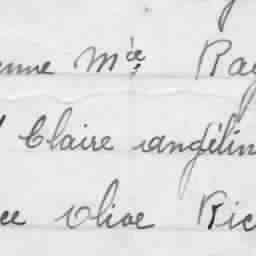 enne Mce, Ray
Claire Angélin
ce Olive Ric